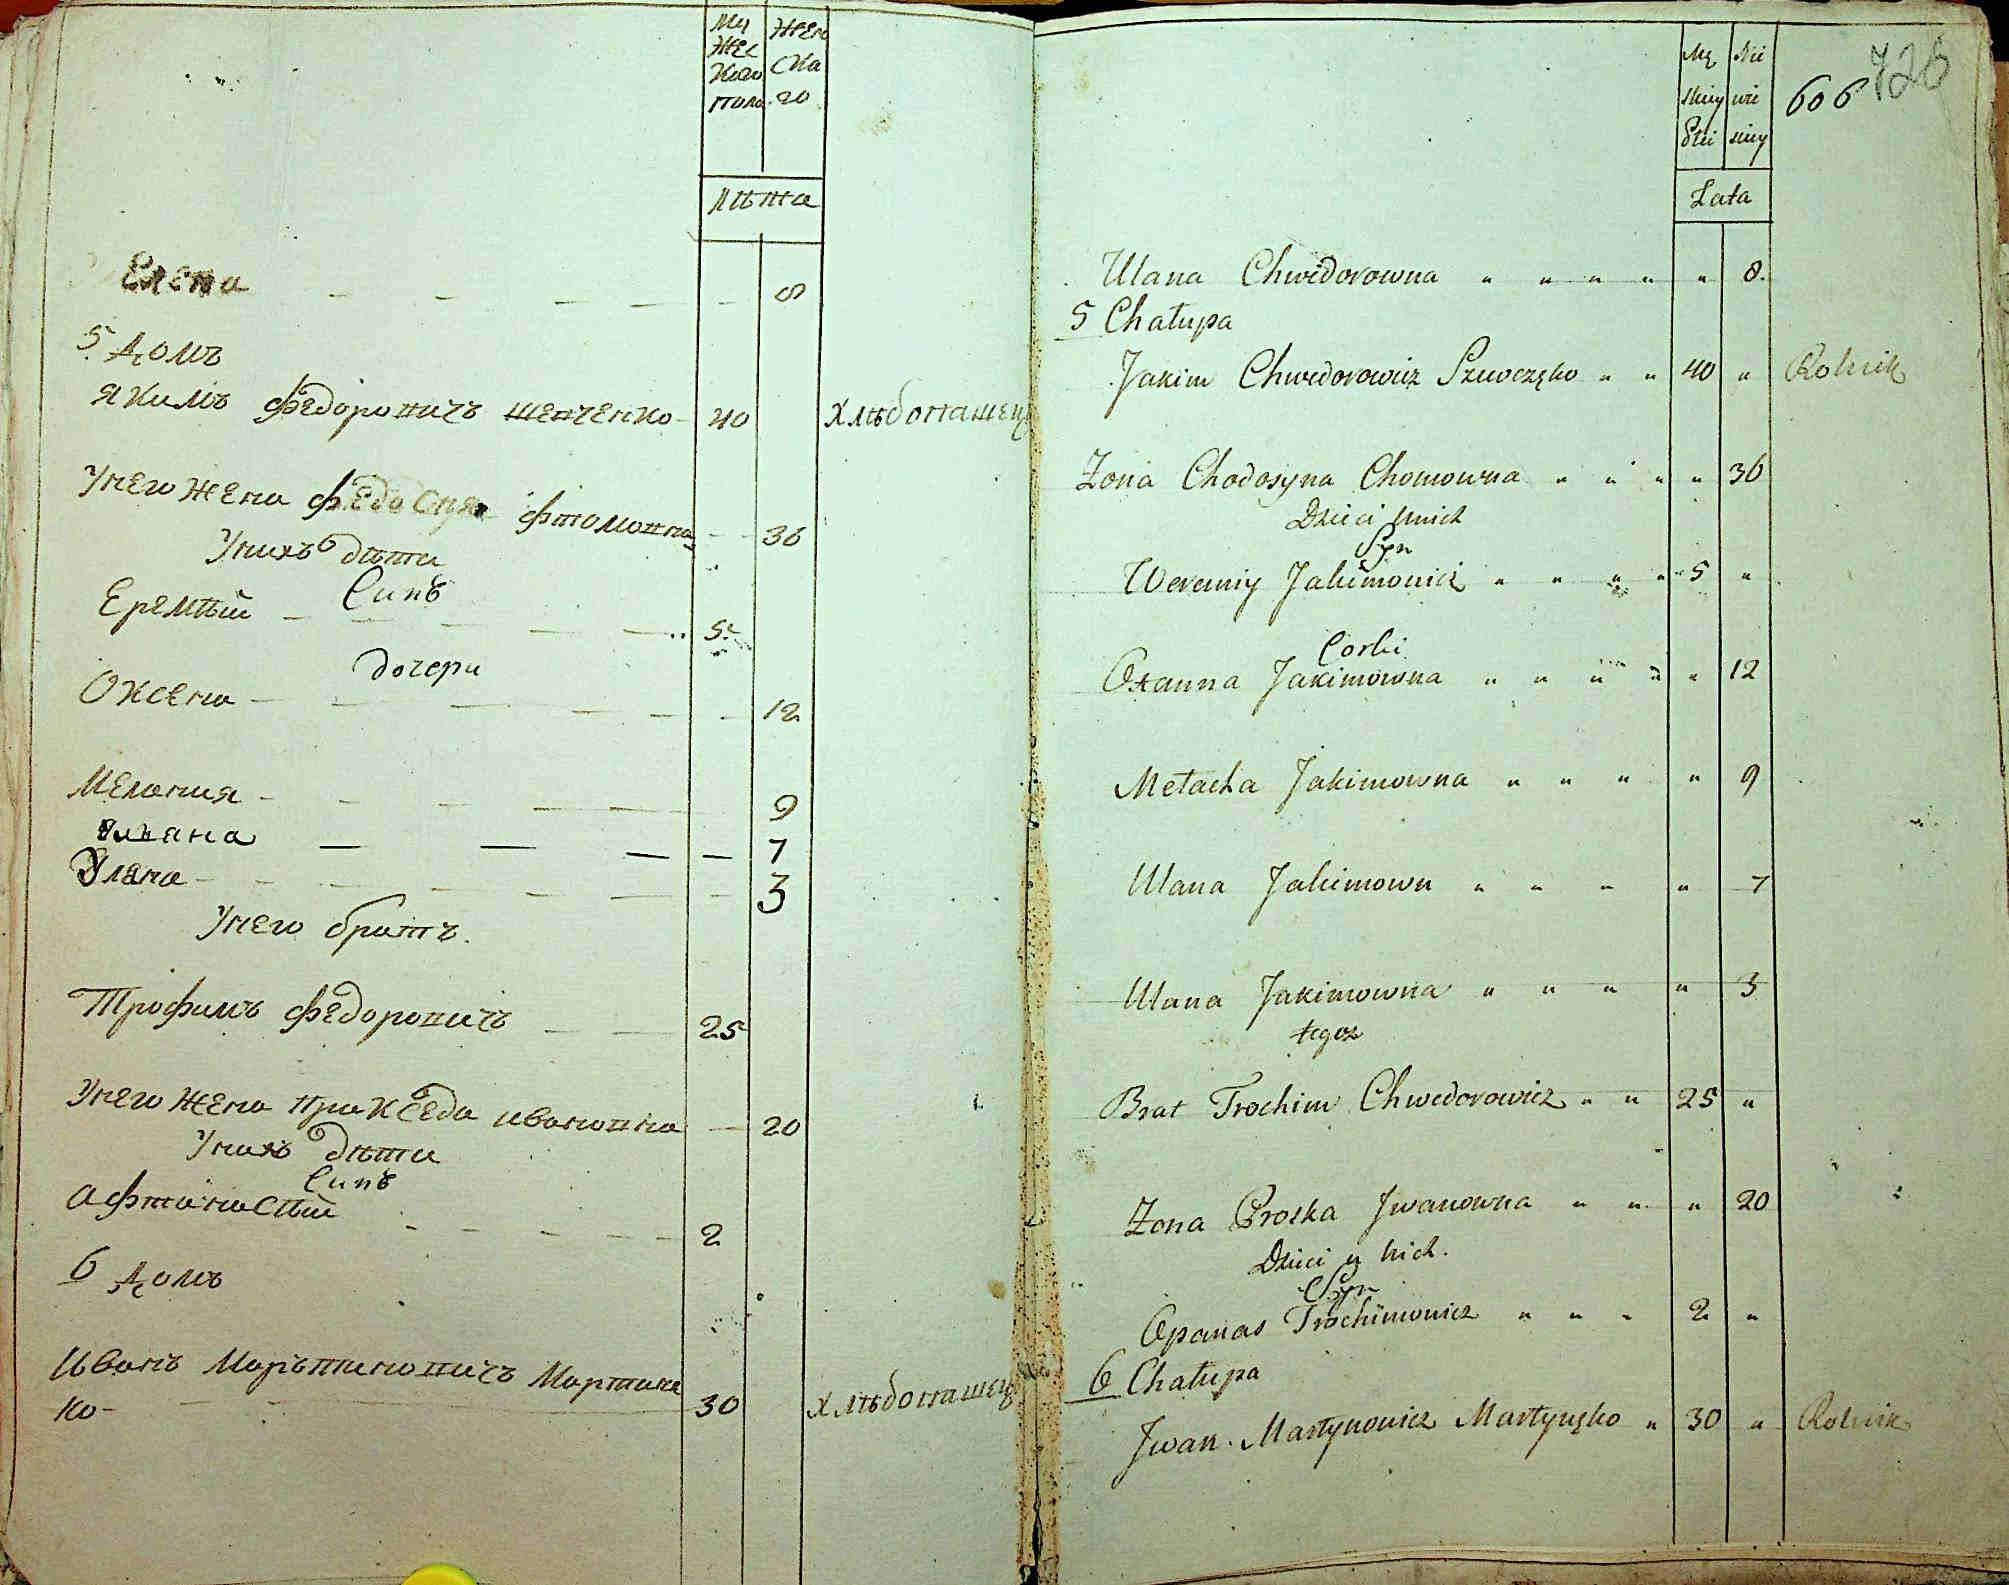 му
жес
кого
пола
жен
ска
го
лѣта
Елена 8
5. домъ
Якимъ Федоровичъ Шевченко 40 хлѣбопашецъ
Унего жена Федосия Фтомовна 36
Унихъ дѣти
Синъ
Еремѣй 5
дочери
Оксена 12
Мелания 9
Улиана 7
Уляна 3
Унего братъ.
Трофимъ Федоровичъ 25
Унего жена Пракседа Ивановна 20
Унихъ дѣти
Синъ
Афтанасѣй 2
6 домъ
Иванъ Марътиновичъ Мартине
ко 30 хлѣбопашецъ
606 726
Lata
Ulana Chwedorowna " " " " " 8.
5 Chałupa
Jakim Chwedorowicz Szewczęko " " 40 " Rolnik
Żona Chodosyna Chomowna " " " " 36
Dzieci unich
Syn
Weremiy Jakimowicz " " " " 5 "
Corki
Oxanna Jakimowna " " " " " 12
Mełacha Jakimowna " " " " 9
Ulana Jakimown " " " " 7
Ulana Jakimowna " " " " 3
tegoz
Brat Trochim Chwedorowicz " " 25 "
Żona Proska Jwanowna " " " 20
Dzieci u nich.
Syn
Opanas Trochimowicz " " " 2 "
6 Chałupa
Jwan Martynowicz Martynęko " 30 " Rolnik